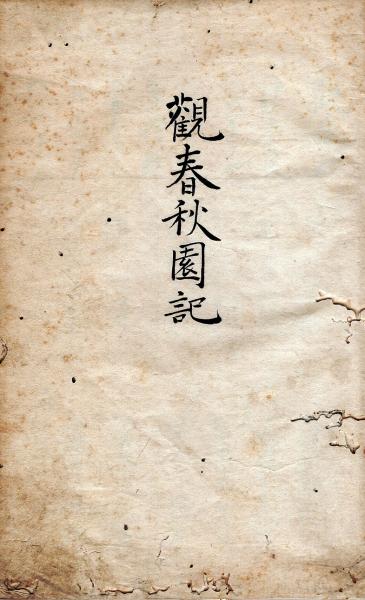 觀春秋園記